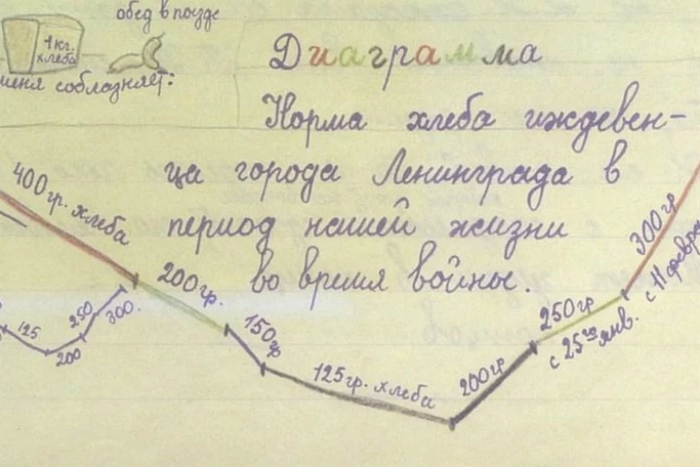 обед в поезде
1 кг. хлеба
меня соблазняет:
Диаграмма
Норма хлеба иждевен-
ца города Ленинграда в
период нашей жизни
во время войны.
400 гр. хлеба
200 гр.
150 гр
125 гр. хлеба
200 гр
250 гр
с 25го янв.
300 гр
с 11 февр
125
200
250
300.